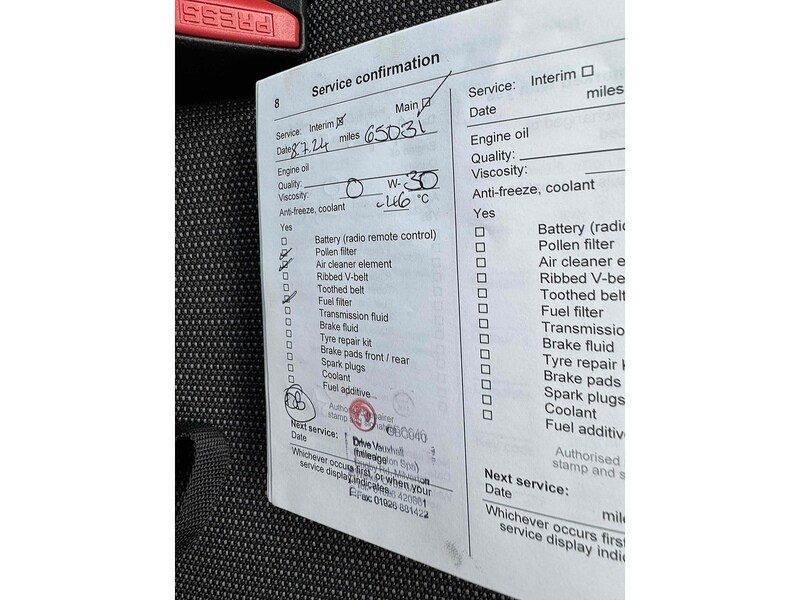 PRESS
8 Service confirmation
Service: Interim Main
Date 8.7.24 miles 65031
Engine oil
Quality:
Viscosity: 0 W- 30
Anti-freeze, coolant -46 °C
Yes
Battery (radio remote control)
Pollen filter
Air cleaner element
Ribbed V-belt
Toothed belt
Fuel filter
Transmission fluid
Brake fluid
Tyre repair kit
Brake pads front / rear
Spark plugs
Coolant
Fuel additive
Authorised repairer
stamp and
GBC040
Next service:
Date
Drive Vauxhall
(mileage
Whichever occurs first, or when your
service display indicates
Fax: 01926 881422
Service: Interim
Date miles
Engine oil
Quality:
Viscosity:
Anti-freeze, coolant
Yes
Battery (radio
Pollen filter
Air cleaner ele
Ribbed V-belt
Toothed belt
Fuel filter
Transmission
Brake fluid
Tyre repair k
Brake pads
Spark plugs
Coolant
Fuel additiv
Authorised
stamp and s
Next service:
Date mil
Whichever occurs first
service display indic